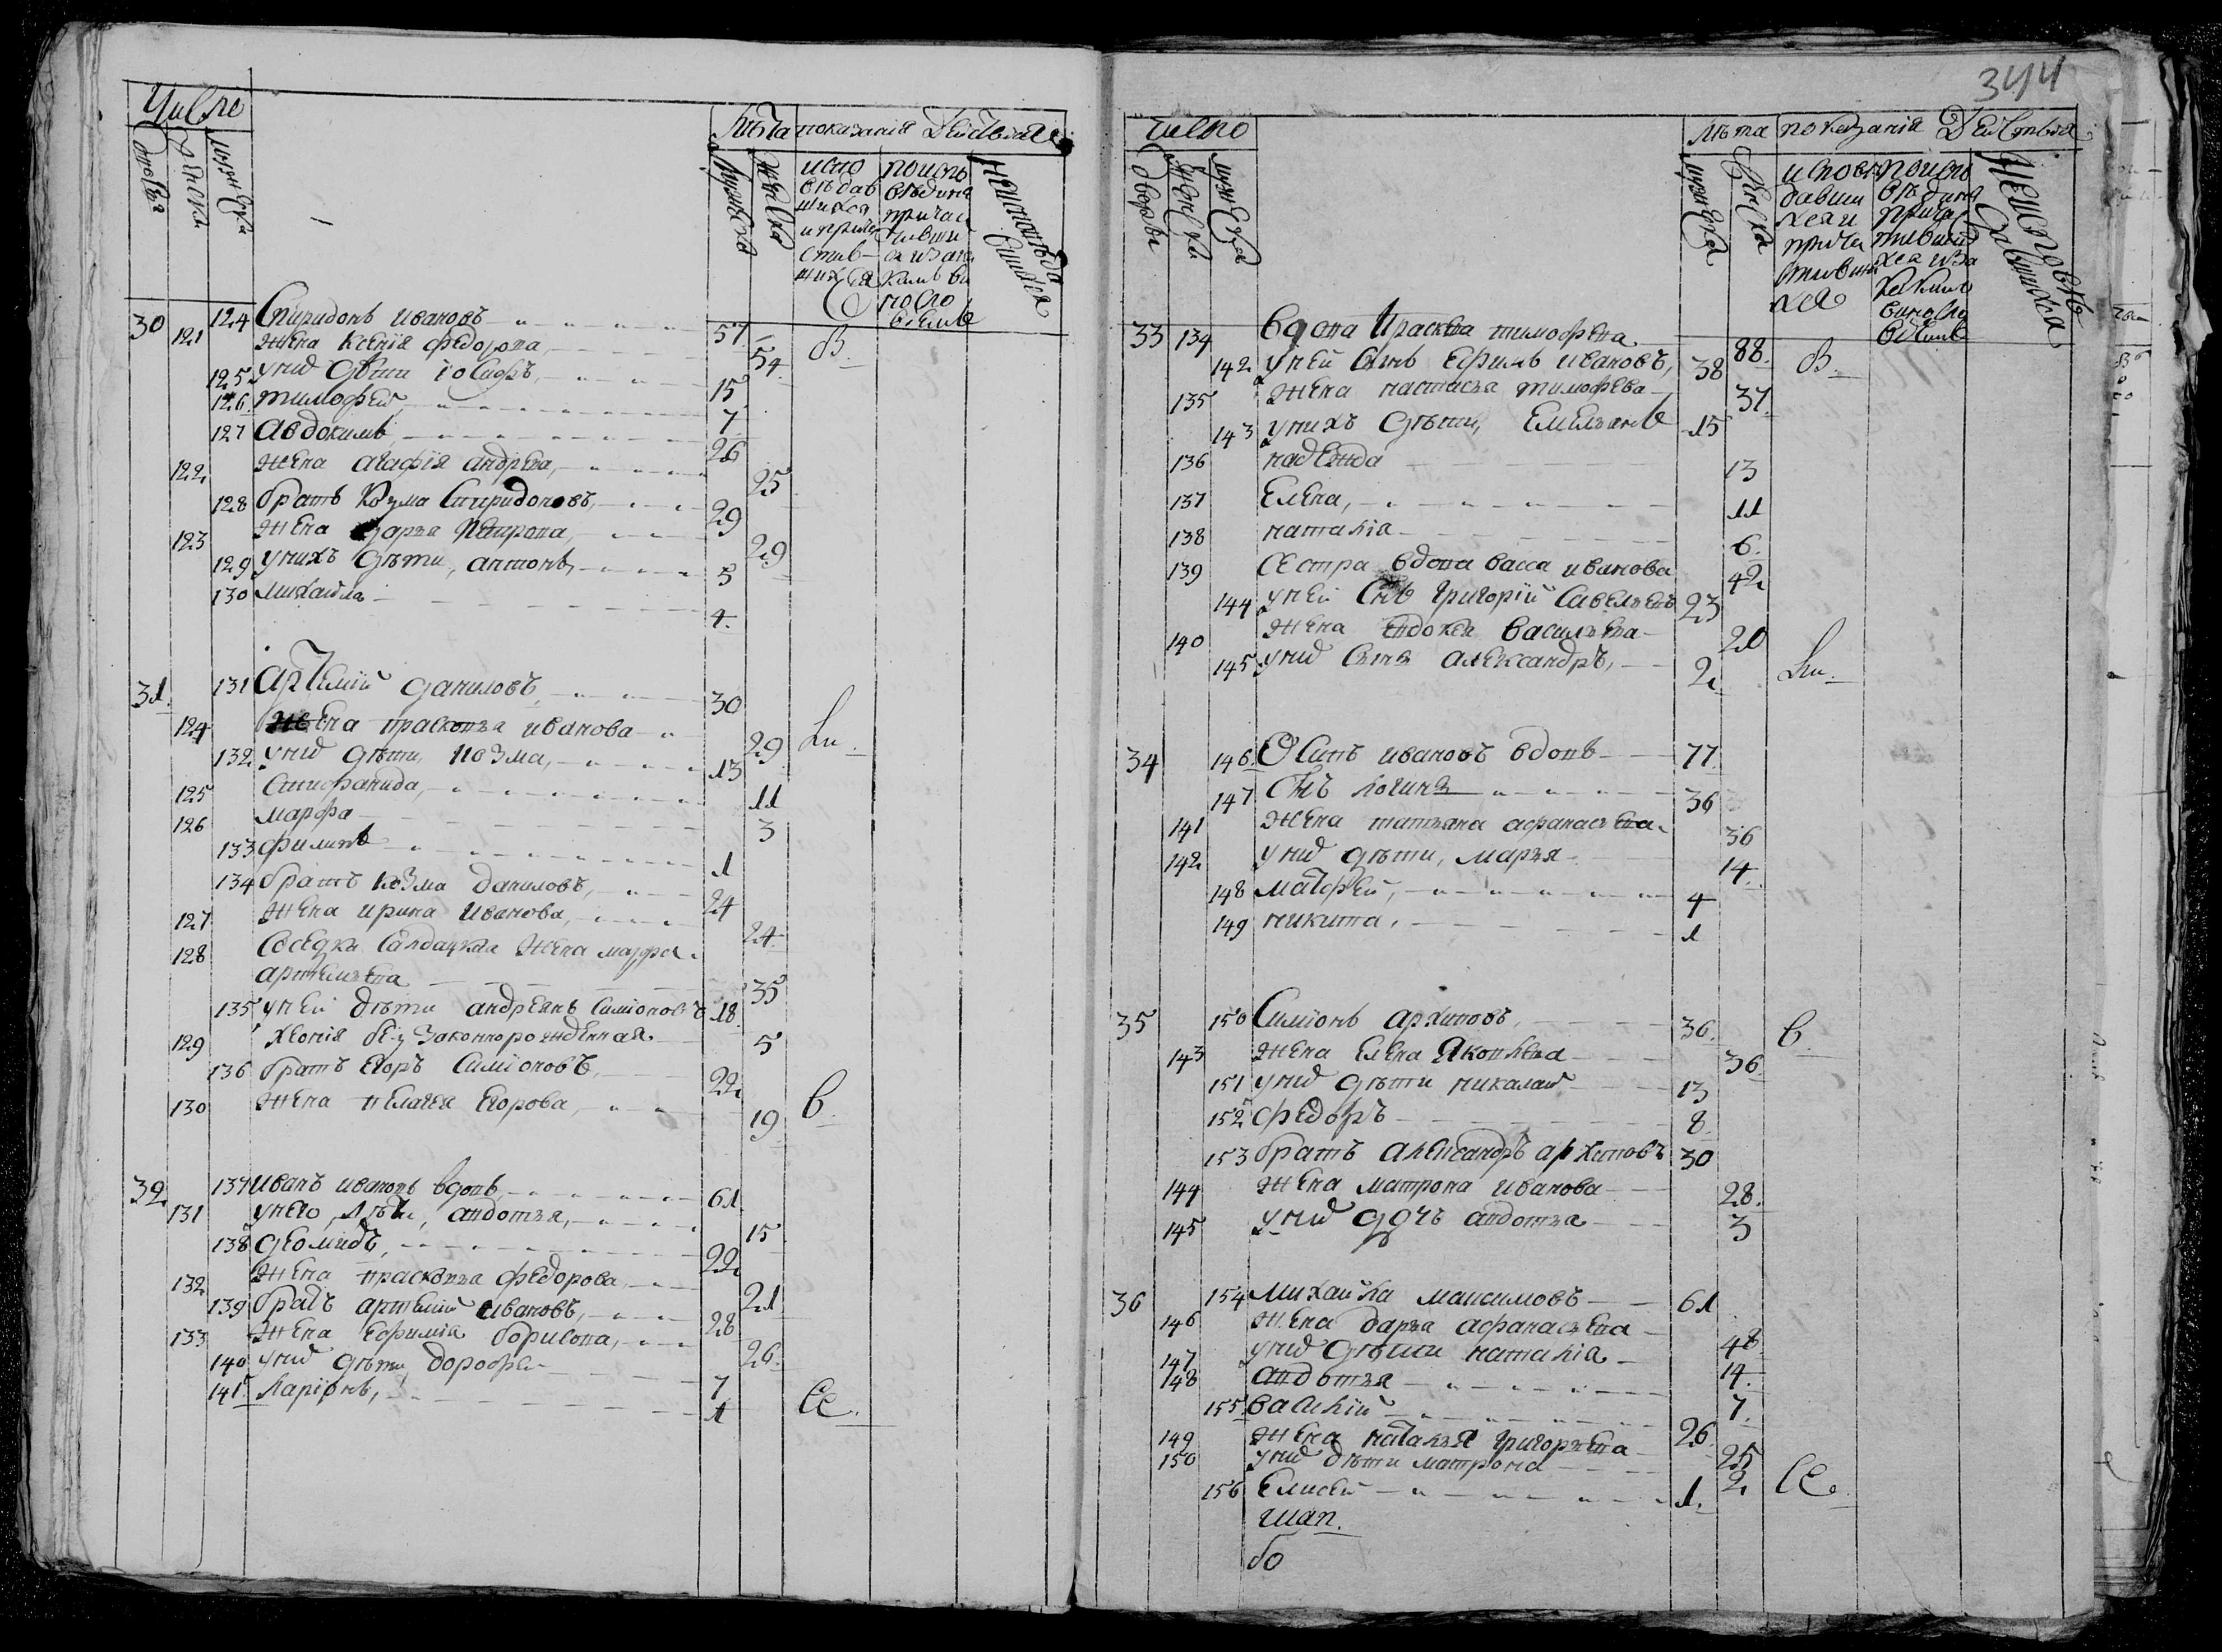 Число
Лѣта показанiя Действия
дворовъ
женска
мужеска
мужеска
женска
испо
вѣдав
шихся
и прича
стив-
шихся
поиспо
вѣдина
причас
тивши
хся
неисповѣда
вшихся
30 124 Спиридонъ ивановъ 57
121 жена Ксенiя федорова 54 В.
125 у нид дѣти iосифъ 15
126 тимофей 7
127 Авдокимъ 26
122 жена агафiя андрева 25
128 братъ Козма Спиридоновъ 29
123 жена дарья Петрова 29
129 у нихъ дѣти, антонъ 5
130 михайла 4.
31. 131 Артемiй даниловъ 30
124 жена прасковья иванова 29
132 у нид дѣти, козма 13
125 Стифанида 11
126 марфа 3
133 филипъ 1
134 братъ козма даниловъ 24
127 жена ирина иванова 24
128 Соседка Салдацкая жена марфа
артемьева 35
135 у ней дѣти андреянъ Симiоновъ 18.
129 хсенiя без Законнорожденная 5
136 братъ Егоръ Симiоновъ 22
130 жена пелагея Егорова 19 В.
32 137 иванъ ивановъ вдовъ 61
131 у него дѣти, авдотья 15
138 деомидъ 22
132 жена прасковья федорова 21
139 братъ артемiй ивановъ 28
133 жена ефимiя борисова 26.
140 у нид дѣти дорофей 7
141 Ларiонъ, 1
344
число
лѣта показанiя Действия
дворовъ
женска
мужеска
мужеска
женска
исповѣ
давши
хся и
прича
стивши
хся
поиспо
вѣдина
прича
тивши
хся иза
каким
винословиемъ
неисповѣ
давшихся
33 134 вдова Прасковья тимофева 88.
142 у ней сынъ Ефимъ ивановъ, 38 В.
135 жена настасья тимофева 37.
143 у нихъ дѣти, Емельянъ 15
136 надежда 13
137 Елена, 11
138 наталiя 6.
139 Сестра вдова васса иванова 42
144 у ней Снъ Григорiй Савельевъ 23
140 жена Евдокея васильева 20
145 у нид сынъ александръ, 2
34 146. Осипъ ивановъ вдовъ 77.
147 Снъ Логинъ 36
141 жена татьяна афанасьева 36
142 у нид дѣти, марья 14.
148 матфей, 4
149 никита. 1
35 150 Симiонъ архиповъ, 36. в
143 жена Елена Яковлева 36.
151 у нид дѣти николай 13
152 федоръ 8.
153 братъ александръ архиповъ 30
144 жена матрона иванова 28.
145 у нид дочь авдотья 3
36 154 михайла максимовъ 61
146 жена дарья афанасьева 48
147 у нид дѣти наталiя 14.
148 авдотья 7.
155 василiй 26.
149 жена наталья григорьева 25
150 у нид дѣти матрона 2.
156 Елисей 1.